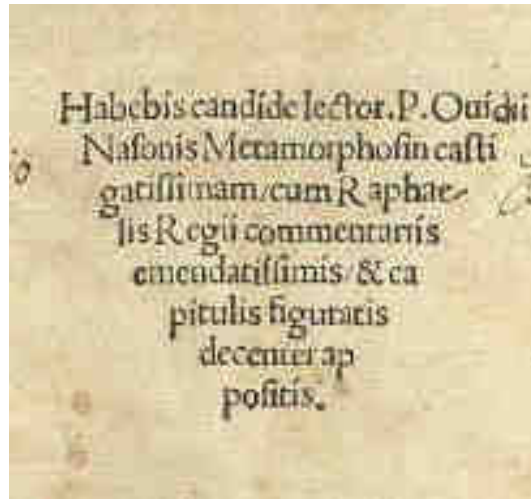 Habebis candide lector. P. Ouidii
Nasonis Metamorphosin casti
gatissimam/cum Raphae-
lis Regii commentariis
emendatissimis/& ca
pitulis figuratis
decenter ap
positis.
io